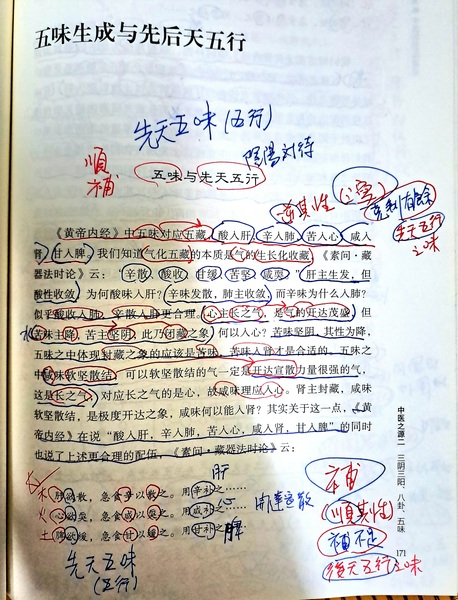 五味生成与先后天五行
先天五味(五行)
陰陽对待
順
補
五味与先天五行
逆其性
克制有余
先天五行
之味
《黄帝内经》中五味对应五藏，酸入肝，辛入肺，苦入心，咸入
肾，甘入脾，我们知道气化五藏的本质是气的生长化收藏，《素问·藏
器法时论》云：“辛散，酸收，甘缓，苦坚，咸耎，”肝主生发，但
酸性收敛，为何酸味入肝？辛味发散，肺主收敛，而辛味为什么入肺？
似乎酸收入肺、辛散入肝更合理。心主长之气，是气的开达茂盛，但
苦味主降，苦主坚阴，此乃闭藏之象，何以入心？苦味坚阴，其性为降，
五味之中体现封藏之象的应该是苦味，苦味入肾才是合适的。五味之
中咸味软坚散结，可以软坚散结的气一定是开达宣散力量很强的气，
这是长之气，对应长之气的是心，故咸味理应入心。肾主封藏，咸味
软坚散结，是极度开达之象，咸味何以能入肾？其实关于这一点，《黄
帝内经》在说“酸入肝，辛入肺，苦入心，咸入肾，甘入脾”的同时
也说了上更合理的配伍，《素问·藏器法时论》云：
肝
木 肝欲散，急食辛以散之。用辛补之
火 心欲耎，急食咸以耎之。用咸补之 心
土 脾欲缓，急食甘以缓之。用甘补之 脾
先天五味
(五行)
補
(順其性)
補不足
後天五行之味
中医之源二
三阴三阳、八卦、五味
171